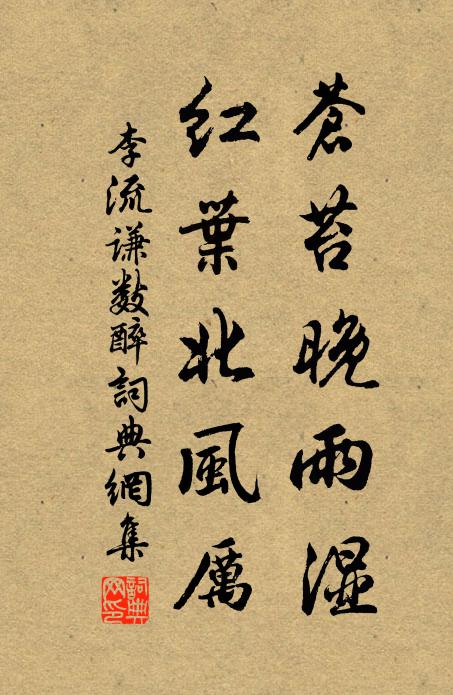 蒼苔晚雨湿
紅葉北風厲
李流謙數醉詞典網集
詞典网印